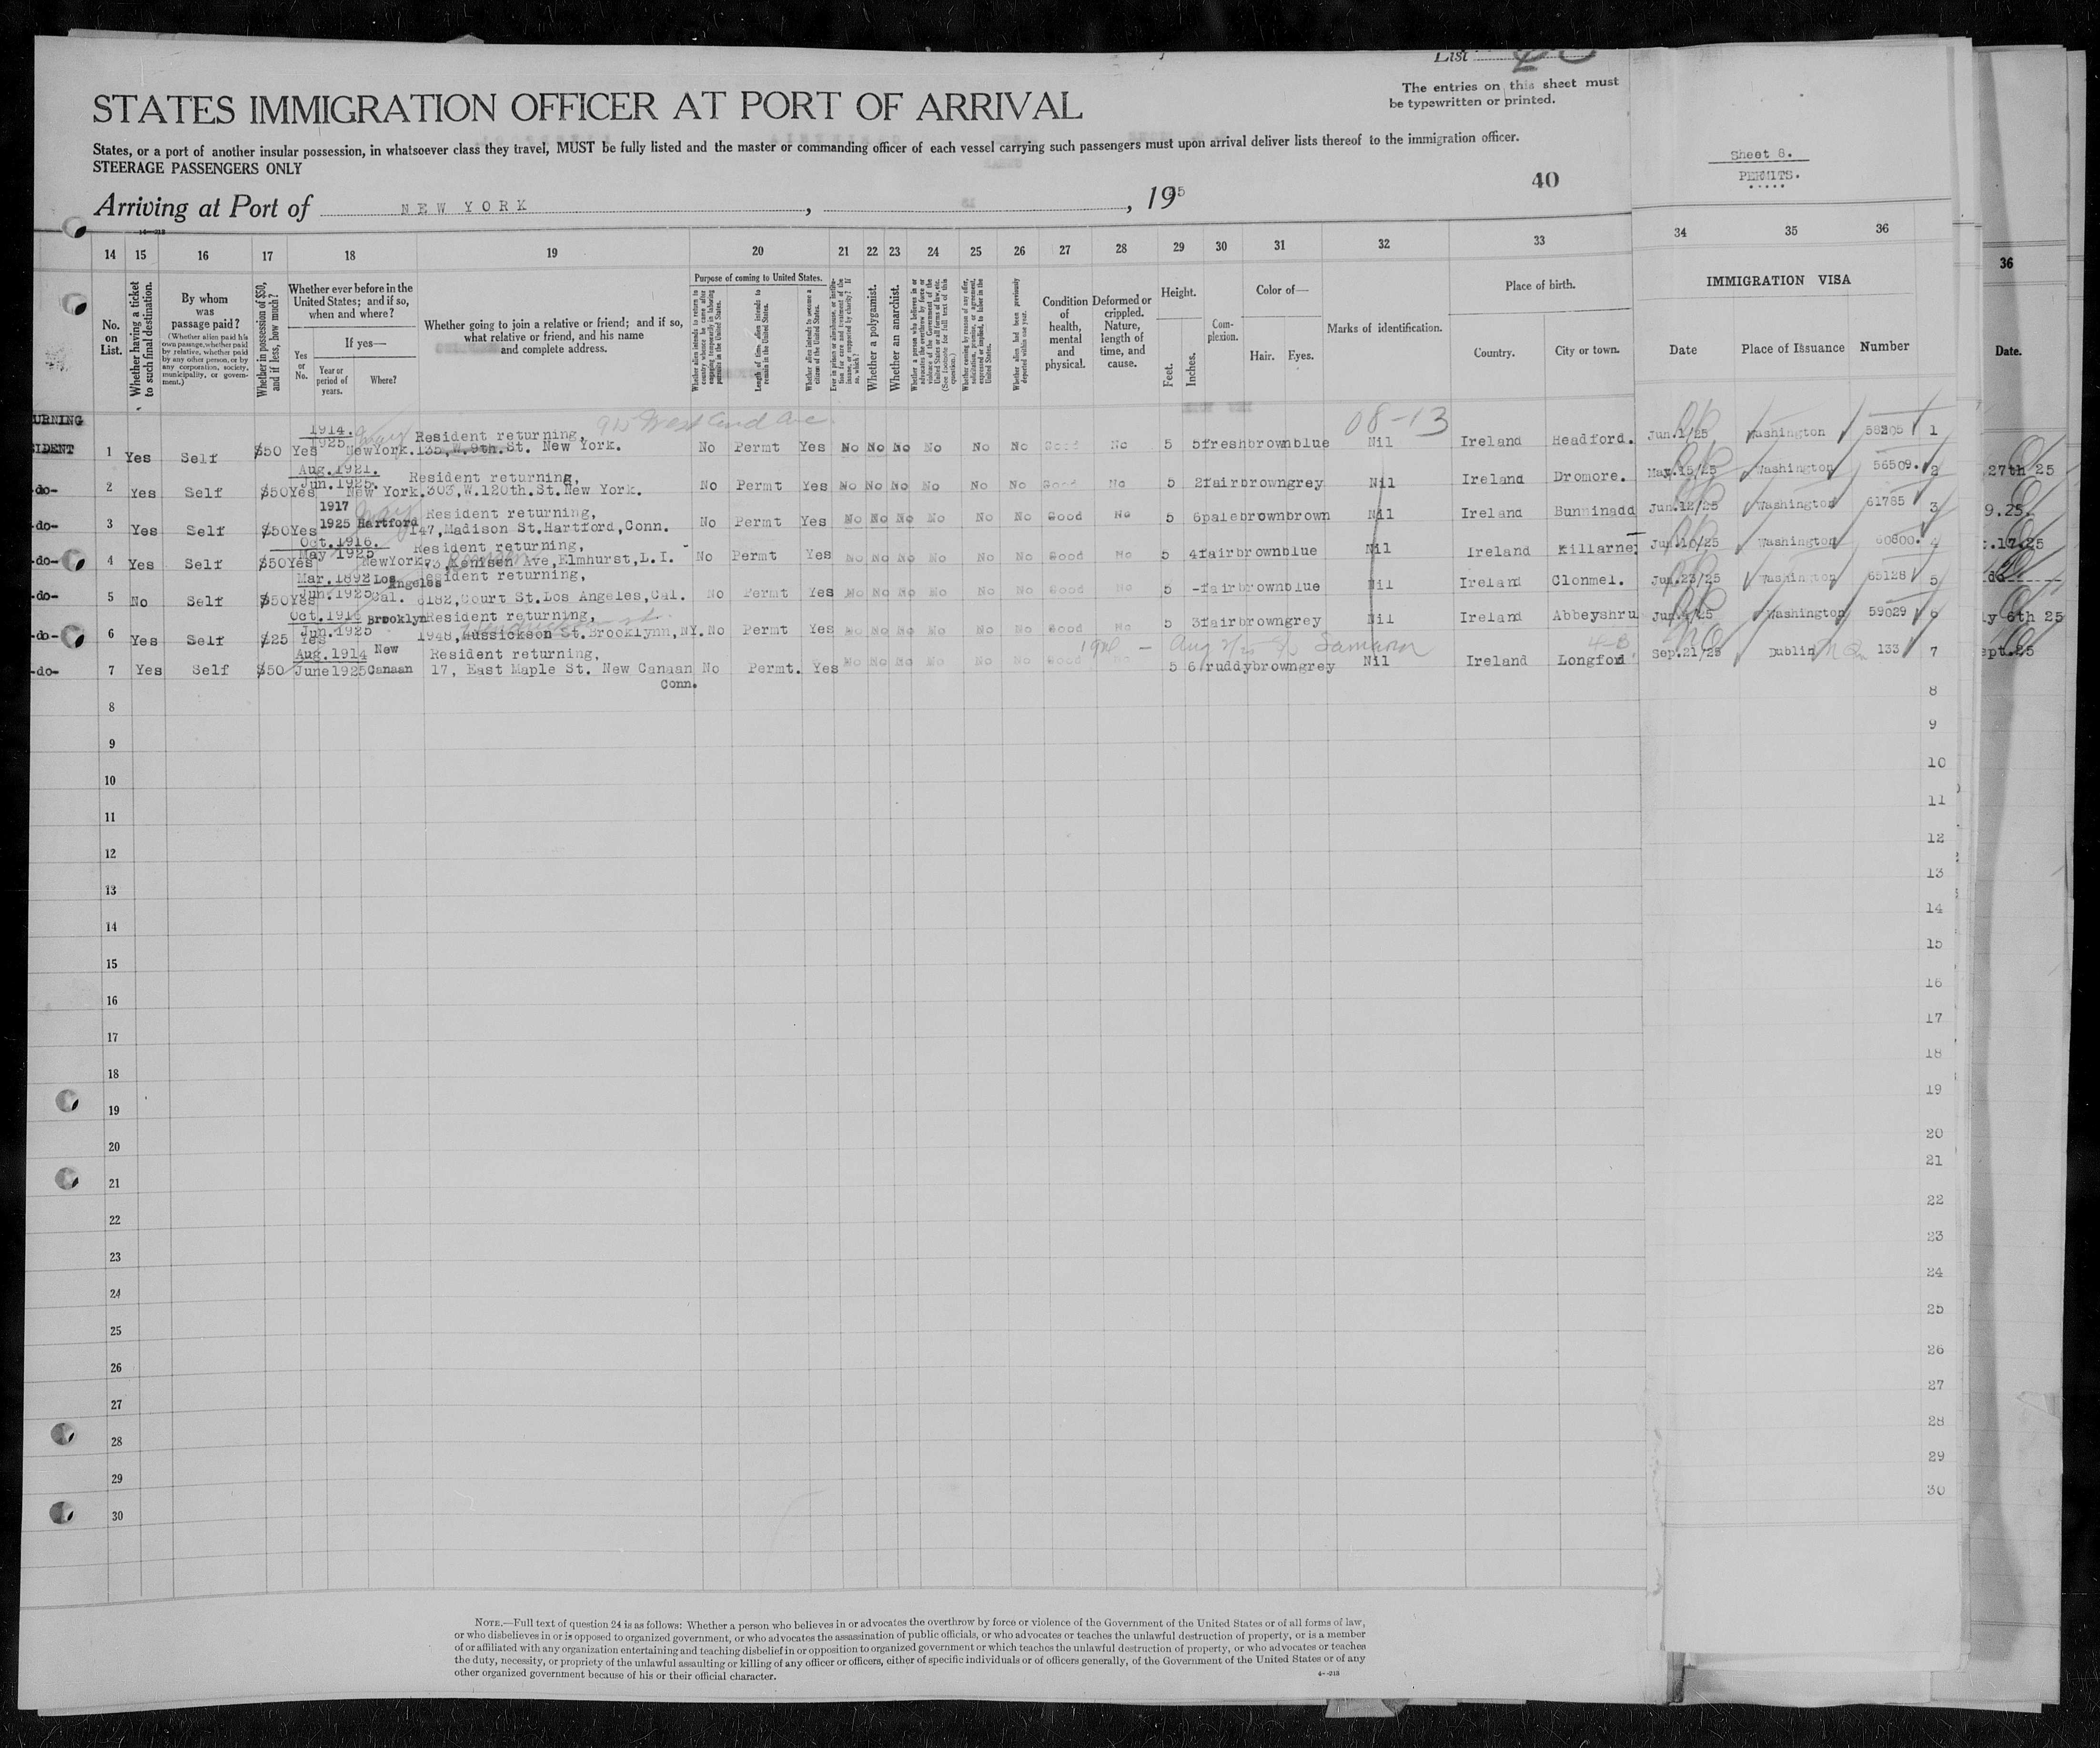 List
The entries on this sheet must
be typewritten or printed.
STATES IMMIGRATION OFFICER AT PORT OF ARRIVAL
States, or a port of another insular possession, in whatsoever class they travel, MUST be fully listed and the master or commanding officer of each vessel carrying such passengers must upon arrival deliver lists thereof to the immigration officer.
STEERAGE PASSENGERS ONLY
Arriving at Port of NEW YORK, , 1925
40
Sheet 8.
PERMITS.
14 15 16 17 18 19 20 21 22 23 24 25 26 27 28 29 30 31 32 33 34 35 36
36
No. on List.
Whether having a ticket to such final destination.
By whom was passage paid?
(Whether alien paid his own passage, whether paid by relative, whether paid by any other person, or by any corporation, society, municipality, or government.)
Whether in possession of $50, and if less, how much?
Whether ever before in the United States; and if so, when and where?
Yes or No.
If yes—
Year or period of years.
Where?
Whether going to join a relative or friend; and if so, what relative or friend, and his name and complete address.
Purpose of coming to United States.
Whether alien intends to return to country whence he came after engaging temporarily in laboring pursuits in the United States.
Length of time alien intends to remain in the United States.
Whether alien intends to become a citizen of the United States.
Whether a polygamist.
Whether an anarchist.
Whether alien had been previously deported within one year.
Condition of health, mental and physical.
Deformed or crippled. Nature, length of time, and cause.
Height.
Feet.
Inches.
Complexion.
Color of—
Hair. Eyes.
Marks of identification.
Place of birth.
Country. City or town.
IMMIGRATION VISA
Date Place of Issuance Number
Date.
915 West End Ave
08-13
URNING
IDENT 1 Yes Self $50 Yes 1914. 1925. NewYork. Resident returning, 135, W.9th.St. New York. No Permt Yes No No No No No No Good No 5 5 fresh brown blue Nil Ireland Headford. Jun.1/25 Washington 58205 1
-do- 2 Yes Self $50 Yes Aug.1921. Jun.1925. New York. Resident returning, 303,W.120th.St.New York. No Permt Yes No No No No No No Good No 5 2 fair brown grey Nil Ireland Dromore. May.15/25 Washington 56509. 2 27th 25
-do- 3 Yes Self $50 Yes 1917 1925 Hartford Resident returning, 147,Madison St.Hartford,Conn. No Permt Yes No No No No No No Good No 5 6 pale brown brown Nil Ireland Bunninadd Jun.12/25 Washington 61785 3 9.25.
-do- 4 Yes Self $50 Yes Oct.1916. May 1925 NewYork. Resident returning, 73, Ave,Elmhurst,L.I. No Permt Yes No No No No No No Good No 5 4 fair brown blue Nil Ireland Killarney Jun.10/25 Washington 60600. 4 .17.25
-do- 5 No Self $50 Yes Mar.1892 Jun.1925 Los Angeles Cal. Resident returning, 6182,Court St.Los Angeles,Cal. No Permt Yes No No No No No No Good No 5 - fair brown blue Nil Ireland Clonmel. Jun.23/25 Washington 65128 5 do
-do- 6 Yes Self $25 Yes Oct.1914 Jun.1925 Brooklyn Resident returning, 1948, St.Brooklynn,NY. No Permt Yes No No No No No No Good No 5 3 fair brown grey Nil Ireland Abbeyshru Jun.4/25 Washington 59029 6 ly 6th 25
Aug 2/25 Samaria
-do- 7 Yes Self $50 Aug.1914 June1925 New Canaan Resident returning, 17, East Maple St. New Canaan Conn. No Permt. Yes No No No No No No Good No 5 6 ruddy brown grey Nil Ireland Longford Sep.21/25 Dublin 133 7 ept.25
8 8
9 9
10 10
11 11
12 12
13 13
14 14
15 15
16 16
17 17
18 18
19 19
20 20
21 21
22 22
23 23
24 24
25 25
26 26
27 27
28 28
29 29
30 30
NOTE.—Full text of question 24 is as follows: Whether a person who believes in or advocates the overthrow by force or violence of the Government of the United States or of all forms of law,
or who disbelieves in or is opposed to organized government, or who advocates the assassination of public officials, or who advocates or teaches the unlawful destruction of property, or is a member
of or affiliated with any organization entertaining and teaching disbelief in or opposition to organized government or which teaches the unlawful destruction of property, or who advocates or teaches
the duty, necessity, or propriety of the unlawful assaulting or killing of any officer or officers, either of specific individuals or of officers generally, of the Government of the United States or of any
other organized government because of his or their official character.